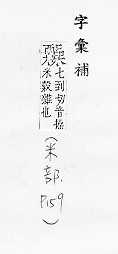 字彙補
七到切音操
米穀雜也
(米部.
P159